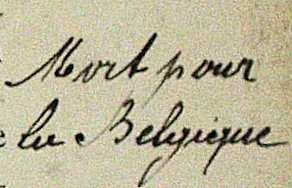 Mort pour
la Belgique